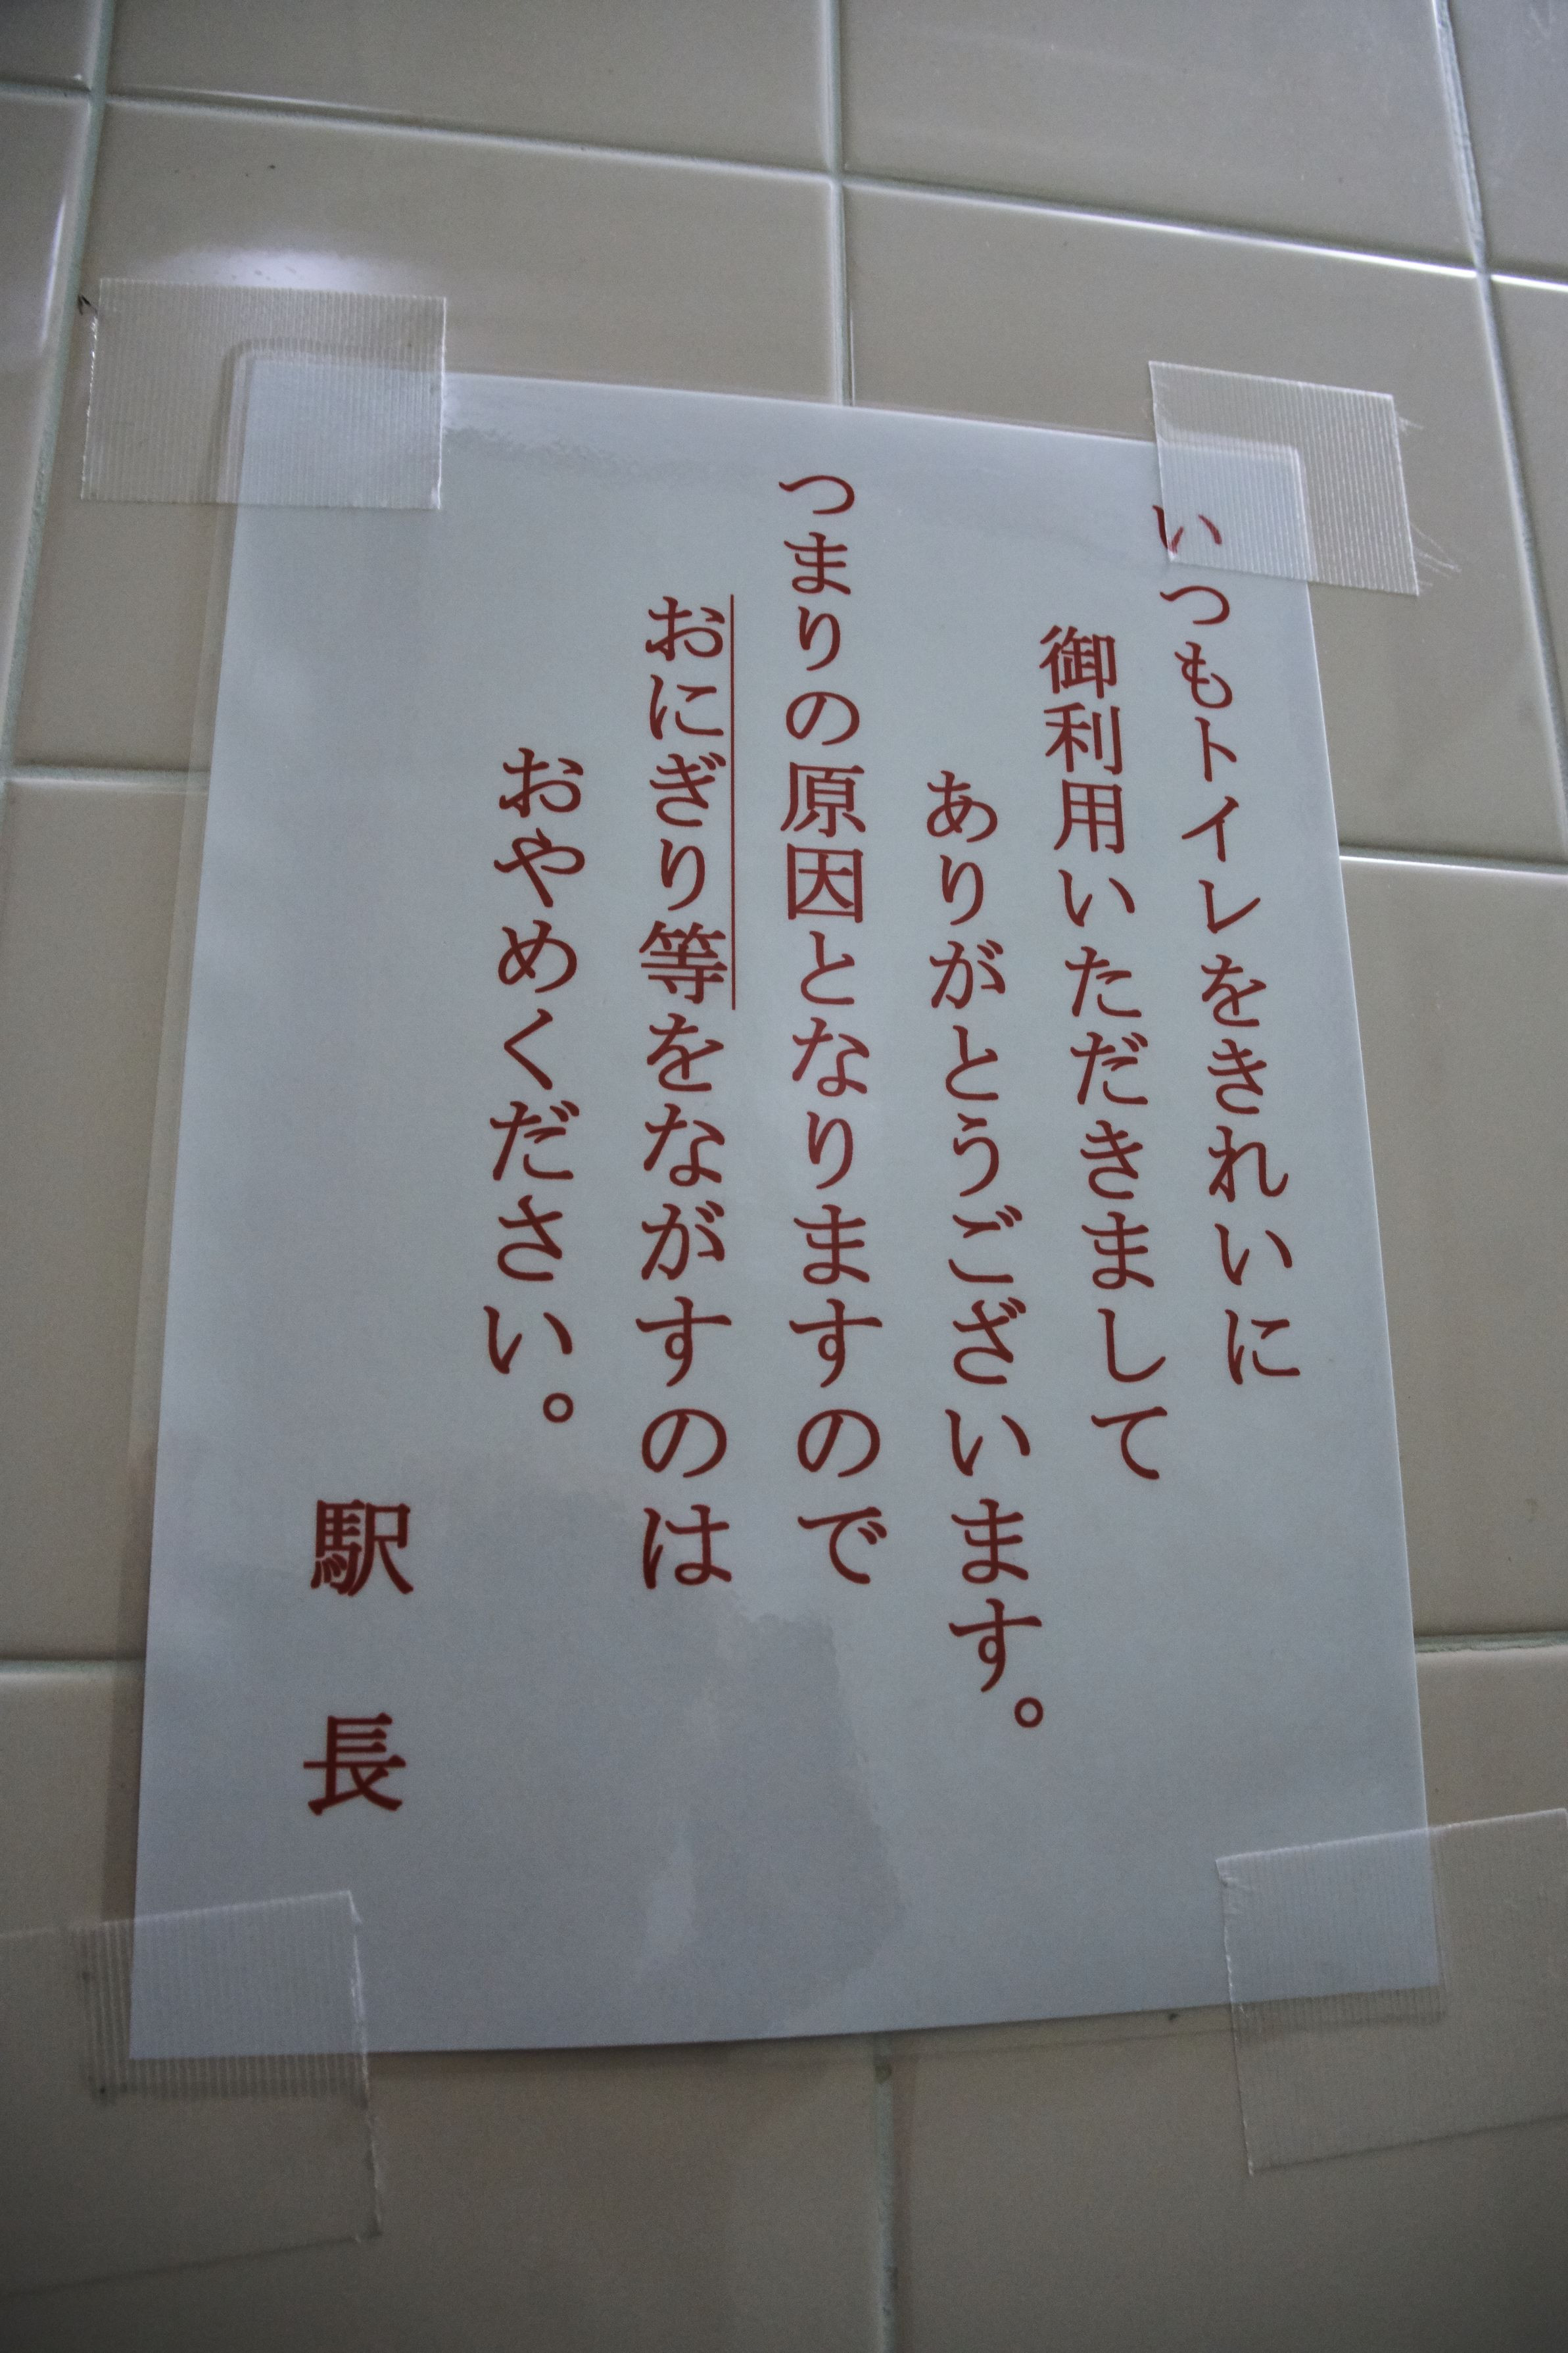 いつもトイレをきれいに
御利用いただきまして
ありがとうございます。
つまりの原因となりますので
おにぎり等をながすのは
おやめください。
駅長